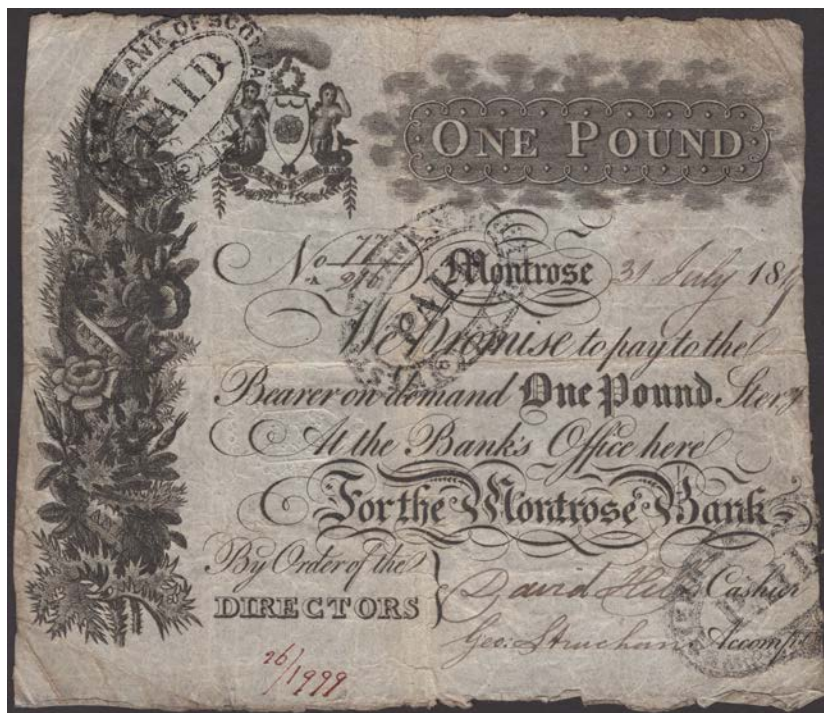 BANK OF SCO
PAID
ONE POUND
No 77/
Montrose 31 July 181
PAID
We Promise to pay to the
Bearer on demand One Pound Sterg
At the Bank's Office here
For the Montrose Bank
By Order of the
DIRECTORS
David Hill Cashier
Geo: Strachan Accompt
26/1999